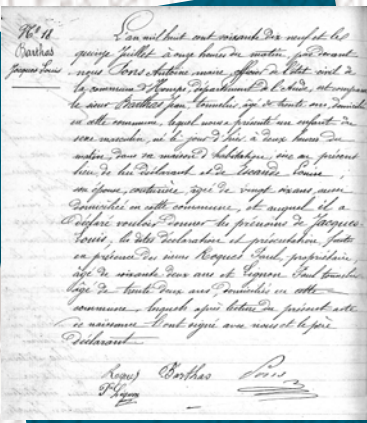 N° 18
Barthas
Jacques Louis
L'an mil huit cent soixante dix neuf et le
quinze Juillet à onze heures du matin, par devant
nous Pons Antoine maire, officier de l'état civil de
la commune d'Homps, département de l'Aude, est comparu
le sieur Barthas Jean tonnelier, âgé de trente ans, domicilié
en cette commune, lequel nous a présenté un enfant du
sexe masculin, né le jour d'hier à deux heures du
matin, dans sa maison d'habitation, sise au présent
lieu, de lui déclarant et de Escande Louise,
son épouse, couturière, âgée de vingt six ans, aussi
domiciliée en cette commune, et auquel il a
déclaré vouloir donner les prénoms de Jacques
Louis, les dites déclaration et présentation, faites
en présence des sieurs Roques Paul, propriétaire,
âgé de soixante deux ans et Pignon Paul tonnelier
âgé de trente deux ans, domiciliés en cette
commune, lesquels après lecture du présent acte
de naissance l'ont signé avec nous et le père
déclarant
Roques Barthas Pons
P. Pignon